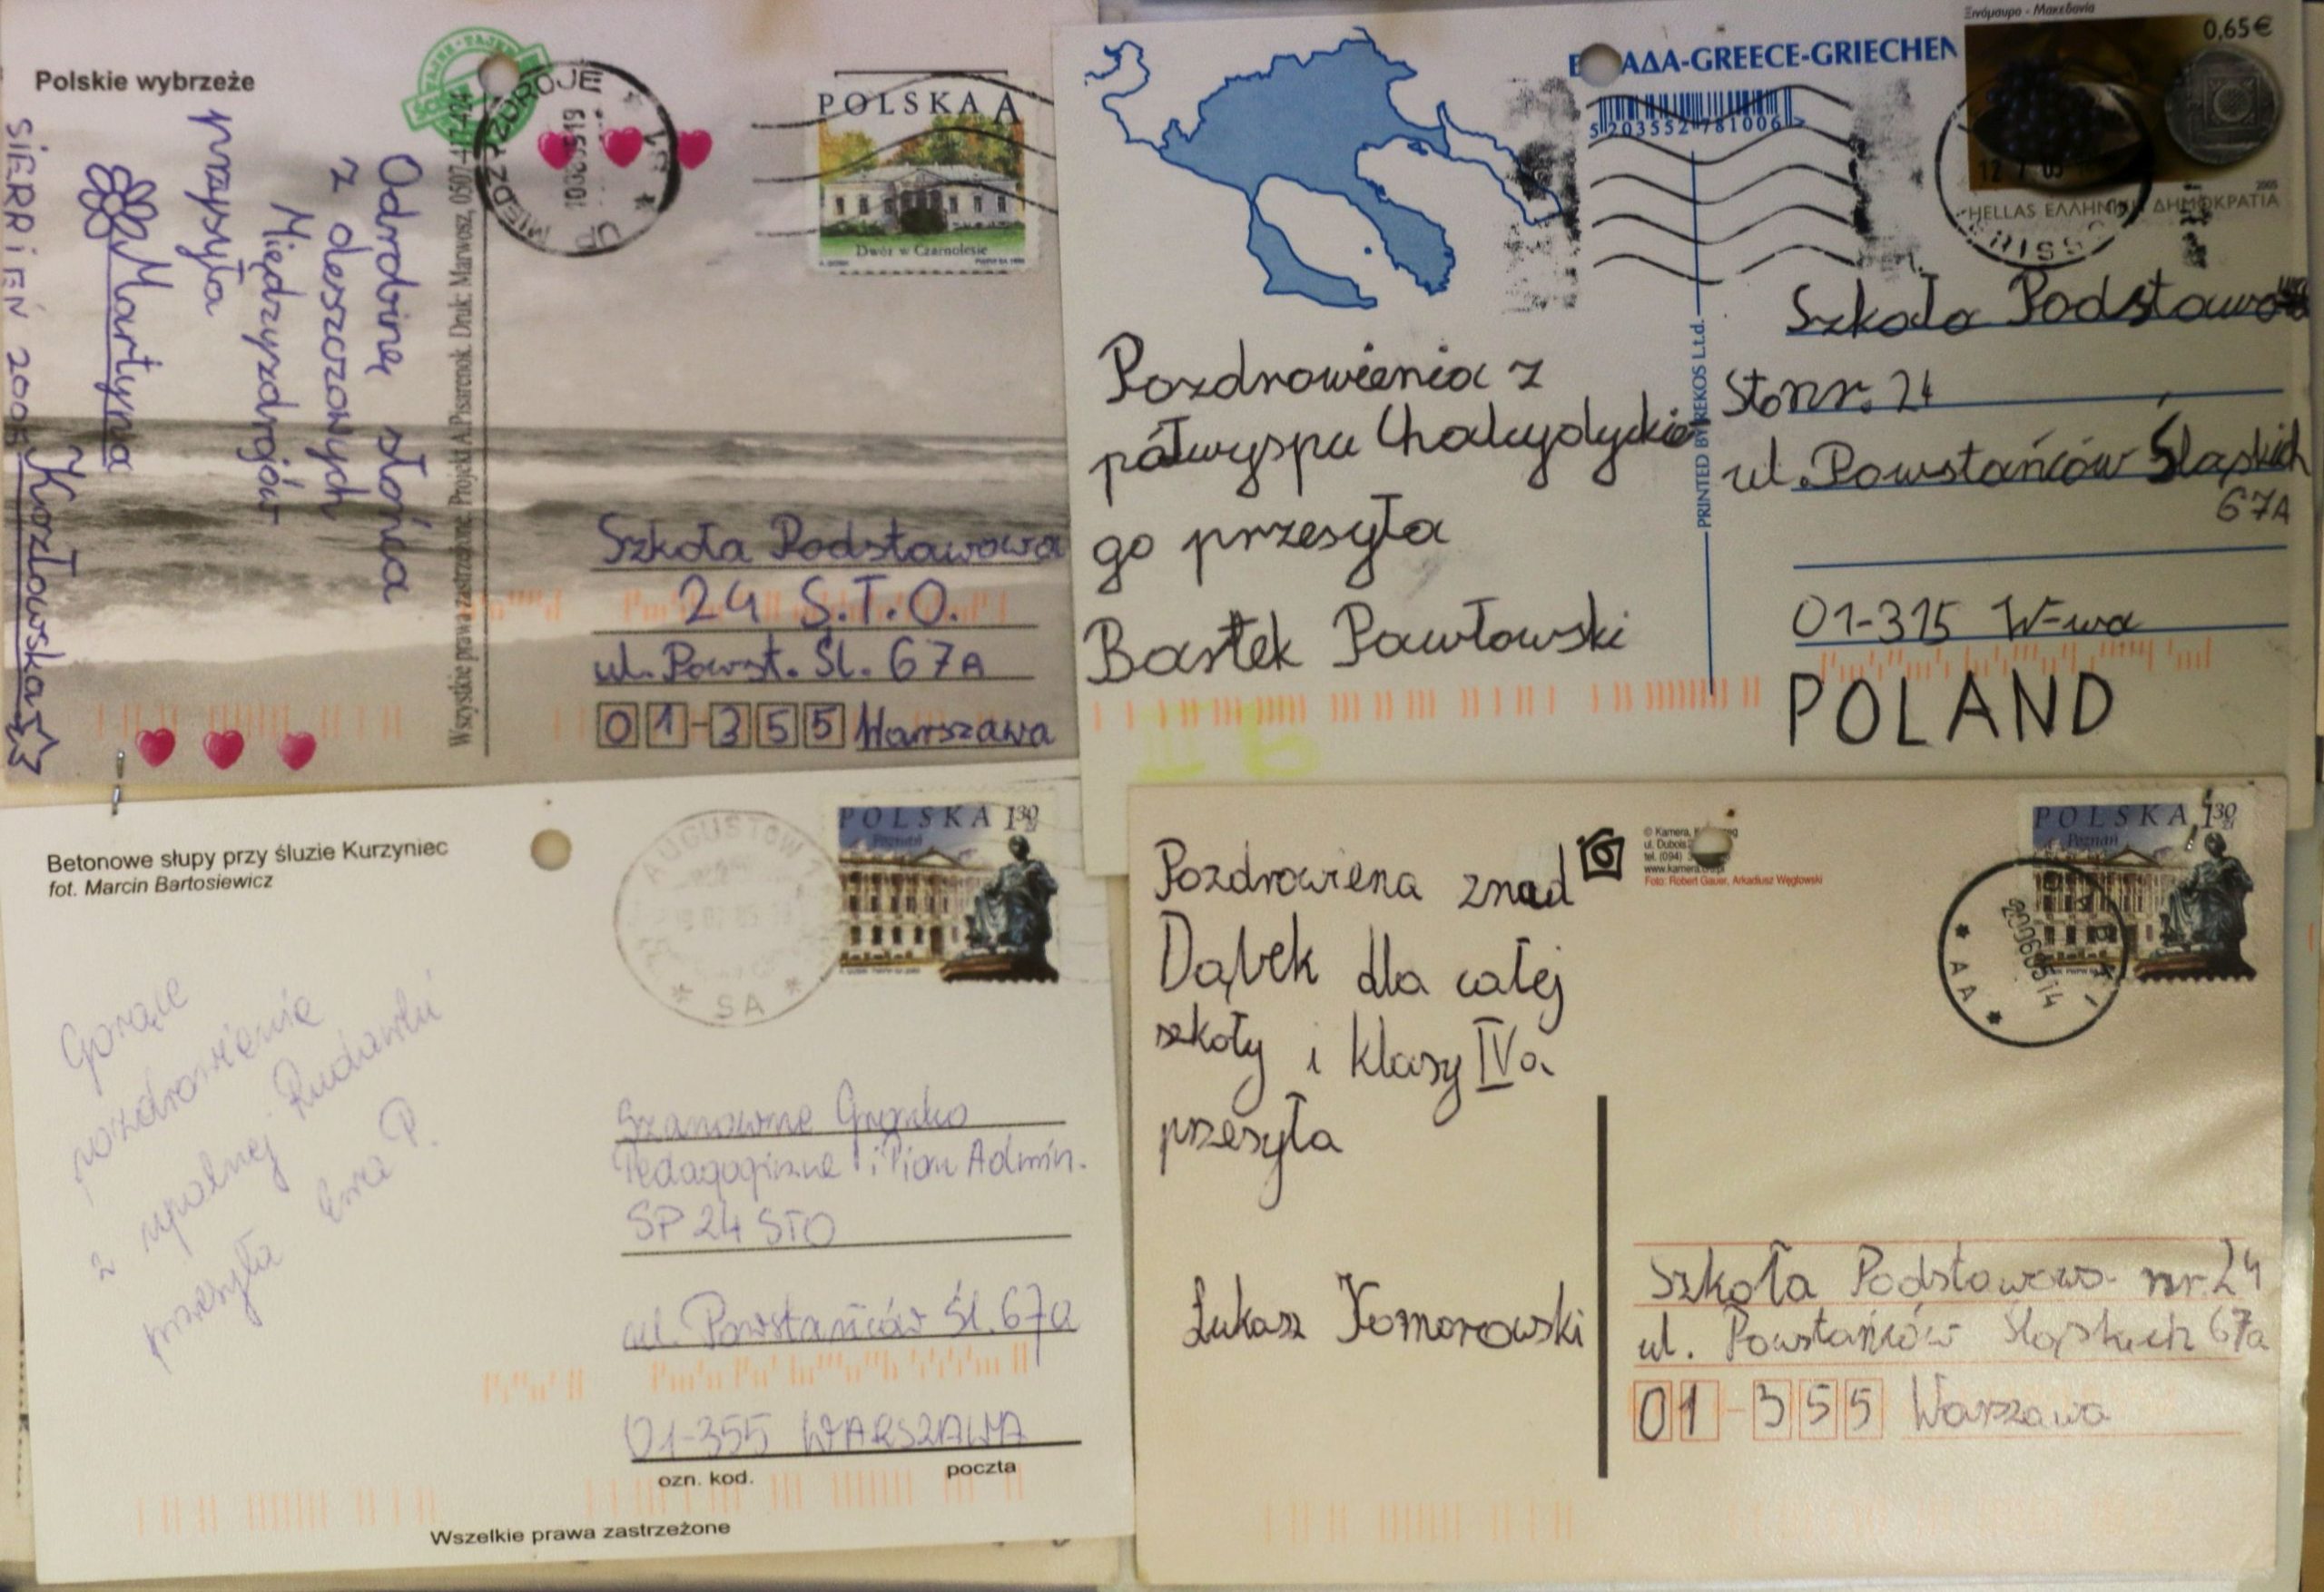 Polskie wybrzeże
Odrobinę słońca
z deszczowych
Międzyzdrojów
przesyła
Martyna
Kozłowska
SIERPIEŃ 2005
Wszystkie prawa zastrzeżone. Projekt A.Pisarenok. Druk: Marwosz, 0507-417-424
UP MIĘDZYZDROJE
POLSKA A
Dwór w Czarnolesie
Szkoła Podstawowa
24 S.T.O.
ul. Powst. Śl. 67A
01-355 Warszawa
Ξινόμαυρο - Μακεδονία
0,65€
ΑΔΑ-GREECE-GRIECHEN
5 203552 781006
12 7 05
2005
HELLAS ΕΛΛΗΝΙΚΗ ΔΗΜΟΚΡΑΤΙΑ
Pozdrowienia z
półwyspu Chalcydyckie
go przesyła
Bartek Pawłowski
PRINTED BY REKOS L.t.d.
Szkoła Podstawowa
Sto nr. 24
ul. Powstańców Śląskich
67A
01-315 W-wa
POLAND
Betonowe słupy przy śluzie Kurzyniec
fot. Marcin Bartosiewicz
AUGUSTÓW
* SA *
POLSKA 1 30 zł
Poznań
Gorące
pozdrowienia
z upalnej Rudawki
przesyła Ewa P.
Szanowne Grono
Pedagogiczne i Pion Admin.
SP 24 STO
ul. Powstańców Śl. 67a
01-355 WARSZAWA
ozn. kod. poczta
Wszelkie prawa zastrzeżone
© Kamera,
ul. Dubois
tel. (094)
www.kamera
Foto: Robert Gauer, Arkadiusz Węglowski
POLSKA 1 30 zł
Poznań
* AA *
290605 14
Pozdrowiena znad
Dąbek dla całej
szkoły i klasy IVa
przesyła
Łukasz Komorowski
Szkoła Podstawowa nr. 24
ul. Powstańców Śląskich 67a
01-355 Warszawa